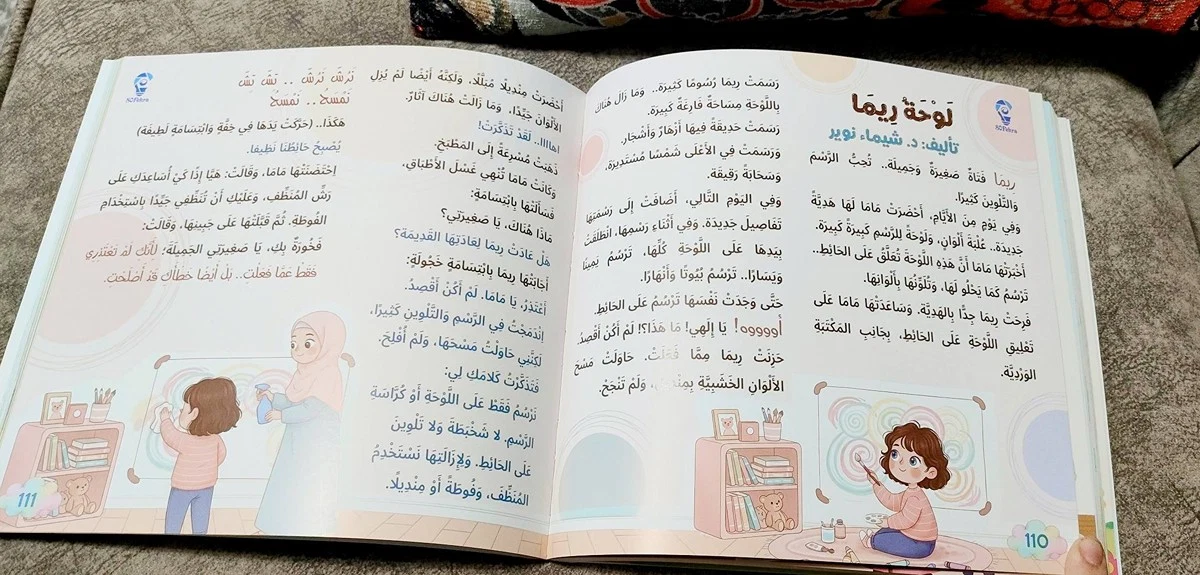 لَوْحَةُ رِيمَا
تأليف: د. شيماء نوير
رِيمَا فَتَاةٌ صَغِيرَةٌ وَجَمِيلَة.. تُحِبُّ الرَّسْمَ
وَالتَّلْوِينَ كَثِيرًا.
وَفِي يَوْمٍ مِنَ الأَيَّامِ، أَحْضَرَتْ مَامَا لَهَا هَدِيَّةً
جَدِيدَة.. عُلْبَةَ أَلْوَانٍ، وَلَوْحَةً لِلرَّسْمِ كَبِيرَةً كَبِيرَة.
أَخْبَرَتْهَا مَامَا أَنَّ هَذِهِ اللَّوْحَةَ تُعَلَّقُ عَلَى الحَائِطِ.
تَرْسُمُ كَمَا يَحْلُو لَهَا، وَتُلَوِّنُهَا بِأَلْوَانِهَا.
فَرِحَتْ رِيمَا جِدًّا بِالهَدِيَّة. وَسَاعَدَتْهَا مَامَا عَلَى
تَعْلِيقِ اللَّوْحَةِ عَلَى الحَائِطِ، بِجَانِبِ المَكْتَبَةِ
الوَرْدِيَّة.
110
رَسَمَتْ رِيمَا رُسُومًا كَثِيرَة.. وَمَا زَالَ هُنَاكَ
بِاللَّوْحَةِ مِسَاحَةٌ فَارِغَةٌ كَبِيرَة.
رَسَمَتْ حَدِيقَةً فِيهَا أَزْهَارٌ وَأَشْجَار.
وَرَسَمَتْ فِي الأَعْلَى شَمْسًا مُسْتَدِيرَة.
وَسَحَابَةً رَقِيقَة.
وَفِي اليَوْمِ التَّالِي، أَضَافَتْ إِلَى رَسْمَتِهَا
تَفَاصِيلَ جَدِيدَة. وَفِي أَثْنَاءِ رَسْمِهَا، انْطَلَقَتْ
بِيَدِهَا عَلَى اللَّوْحَةِ كُلِّهَا، تَرْسُمُ يَمِينًا
وَيَسَارًا.. تَرْسُمُ بُيُوتًا وَأَنْهَارًا.
حَتَّى وَجَدَتْ نَفْسَهَا تَرْسُمُ عَلَى الحَائِطِ.
أُووووه! يَا إِلَهِي! مَا هَذَا؟! لَمْ أَكُنْ أَقْصِدُ.
حَزِنَتْ رِيمَا مِمَّا فَعَلَتْ. حَاوَلَتْ مَسْحَ
الأَلْوَانِ الخَشَبِيَّةِ وَلَمْ تَنْجَحْ.
أَحْضَرَتْ مِنْدِيلًا مُبَلَّلًا، وَلَكِنَّهُ أَيْضًا لَمْ يُزِلِ
الأَلْوَانَ جَيِّدًا. وَمَا زَالَتْ هُنَاكَ آثَارٌ.
اهاااا.. لَقَدْ تَذَكَّرْتُ!
ذَهَبَتْ مُسْرِعَةً إِلَى المَطْبَخِ.
وَكَانَتْ مَامَا تُنْهِي غَسْلَ الأَطْبَاقِ،
فَسَأَلَتْهَا بِابْتِسَامَةٍ:
مَاذَا هُنَاكَ، يَا صَغِيرَتِي؟
هَلْ عَادَتْ رِيمَا لِعَادَتِهَا القَدِيمَة؟
أَجَابَتْهَا رِيمَا بِابْتِسَامَةٍ خَجُولَةٍ:
أَعْتَذِرُ، يَا مَامَا. لَمْ أَكُنْ أَقْصِدُ.
اِنْدَمَجْتُ فِي الرَّسْمِ وَالتَّلْوِينِ كَثِيرًا.
لَكِنَّنِي حَاوَلْتُ مَسْحَهَا، وَلَمْ أُفْلِحْ.
فَتَذَكَّرْتُ كَلَامَكِ لِي:
نَرْسُمُ فَقَطْ عَلَى اللَّوْحَةِ أَوْ كُرَّاسَةِ
الرَّسْمِ. لَا شَخْبَطَةَ وَلَا تَلْوِينَ
عَلَى الحَائِطِ. وَلِإِزَالَتِهَا نَسْتَخْدِمُ
المُنَظِّفَ، وَفُوطَةً أَوْ مِنْدِيلًا.
نَرُشُّ نَرُشُّ .. بَشْ بَشْ
نَمْسَحُ.. نَمْسَحُ
هَكَذَا.. (حَرَّكَتْ يَدَهَا فِي خِفَّةٍ وَابْتِسَامَةٍ لَطِيفَة)
يُصْبِحُ حَائِطُنَا نَظِيفا.
اِحْتَضَنَتْهَا مَامَا، وَقَالَتْ: هَيَّا إِذًا كَيْ أُسَاعِدَكِ عَلَى
رَشِّ المُنَظِّفِ، وَعَلَيْكِ أَنْ تُنَظِّفِي جَيِّدًا بِاسْتِخْدَامِ
الفُوطَة. ثُمَّ قَبَّلَتْهَا عَلَى جَبِينِهَا، وَقَالَتْ:
فَخُورَةٌ بِكِ، يَا صَغِيرَتِي الجَمِيلَة؛ لِأَنَّكِ لَمْ تَعْتَذِرِي
فَقَطْ عَمَّا فَعَلْتِ.. بَلْ أَيْضًا خَطَأَكِ قَدْ أَصْلَحْتِ.
111